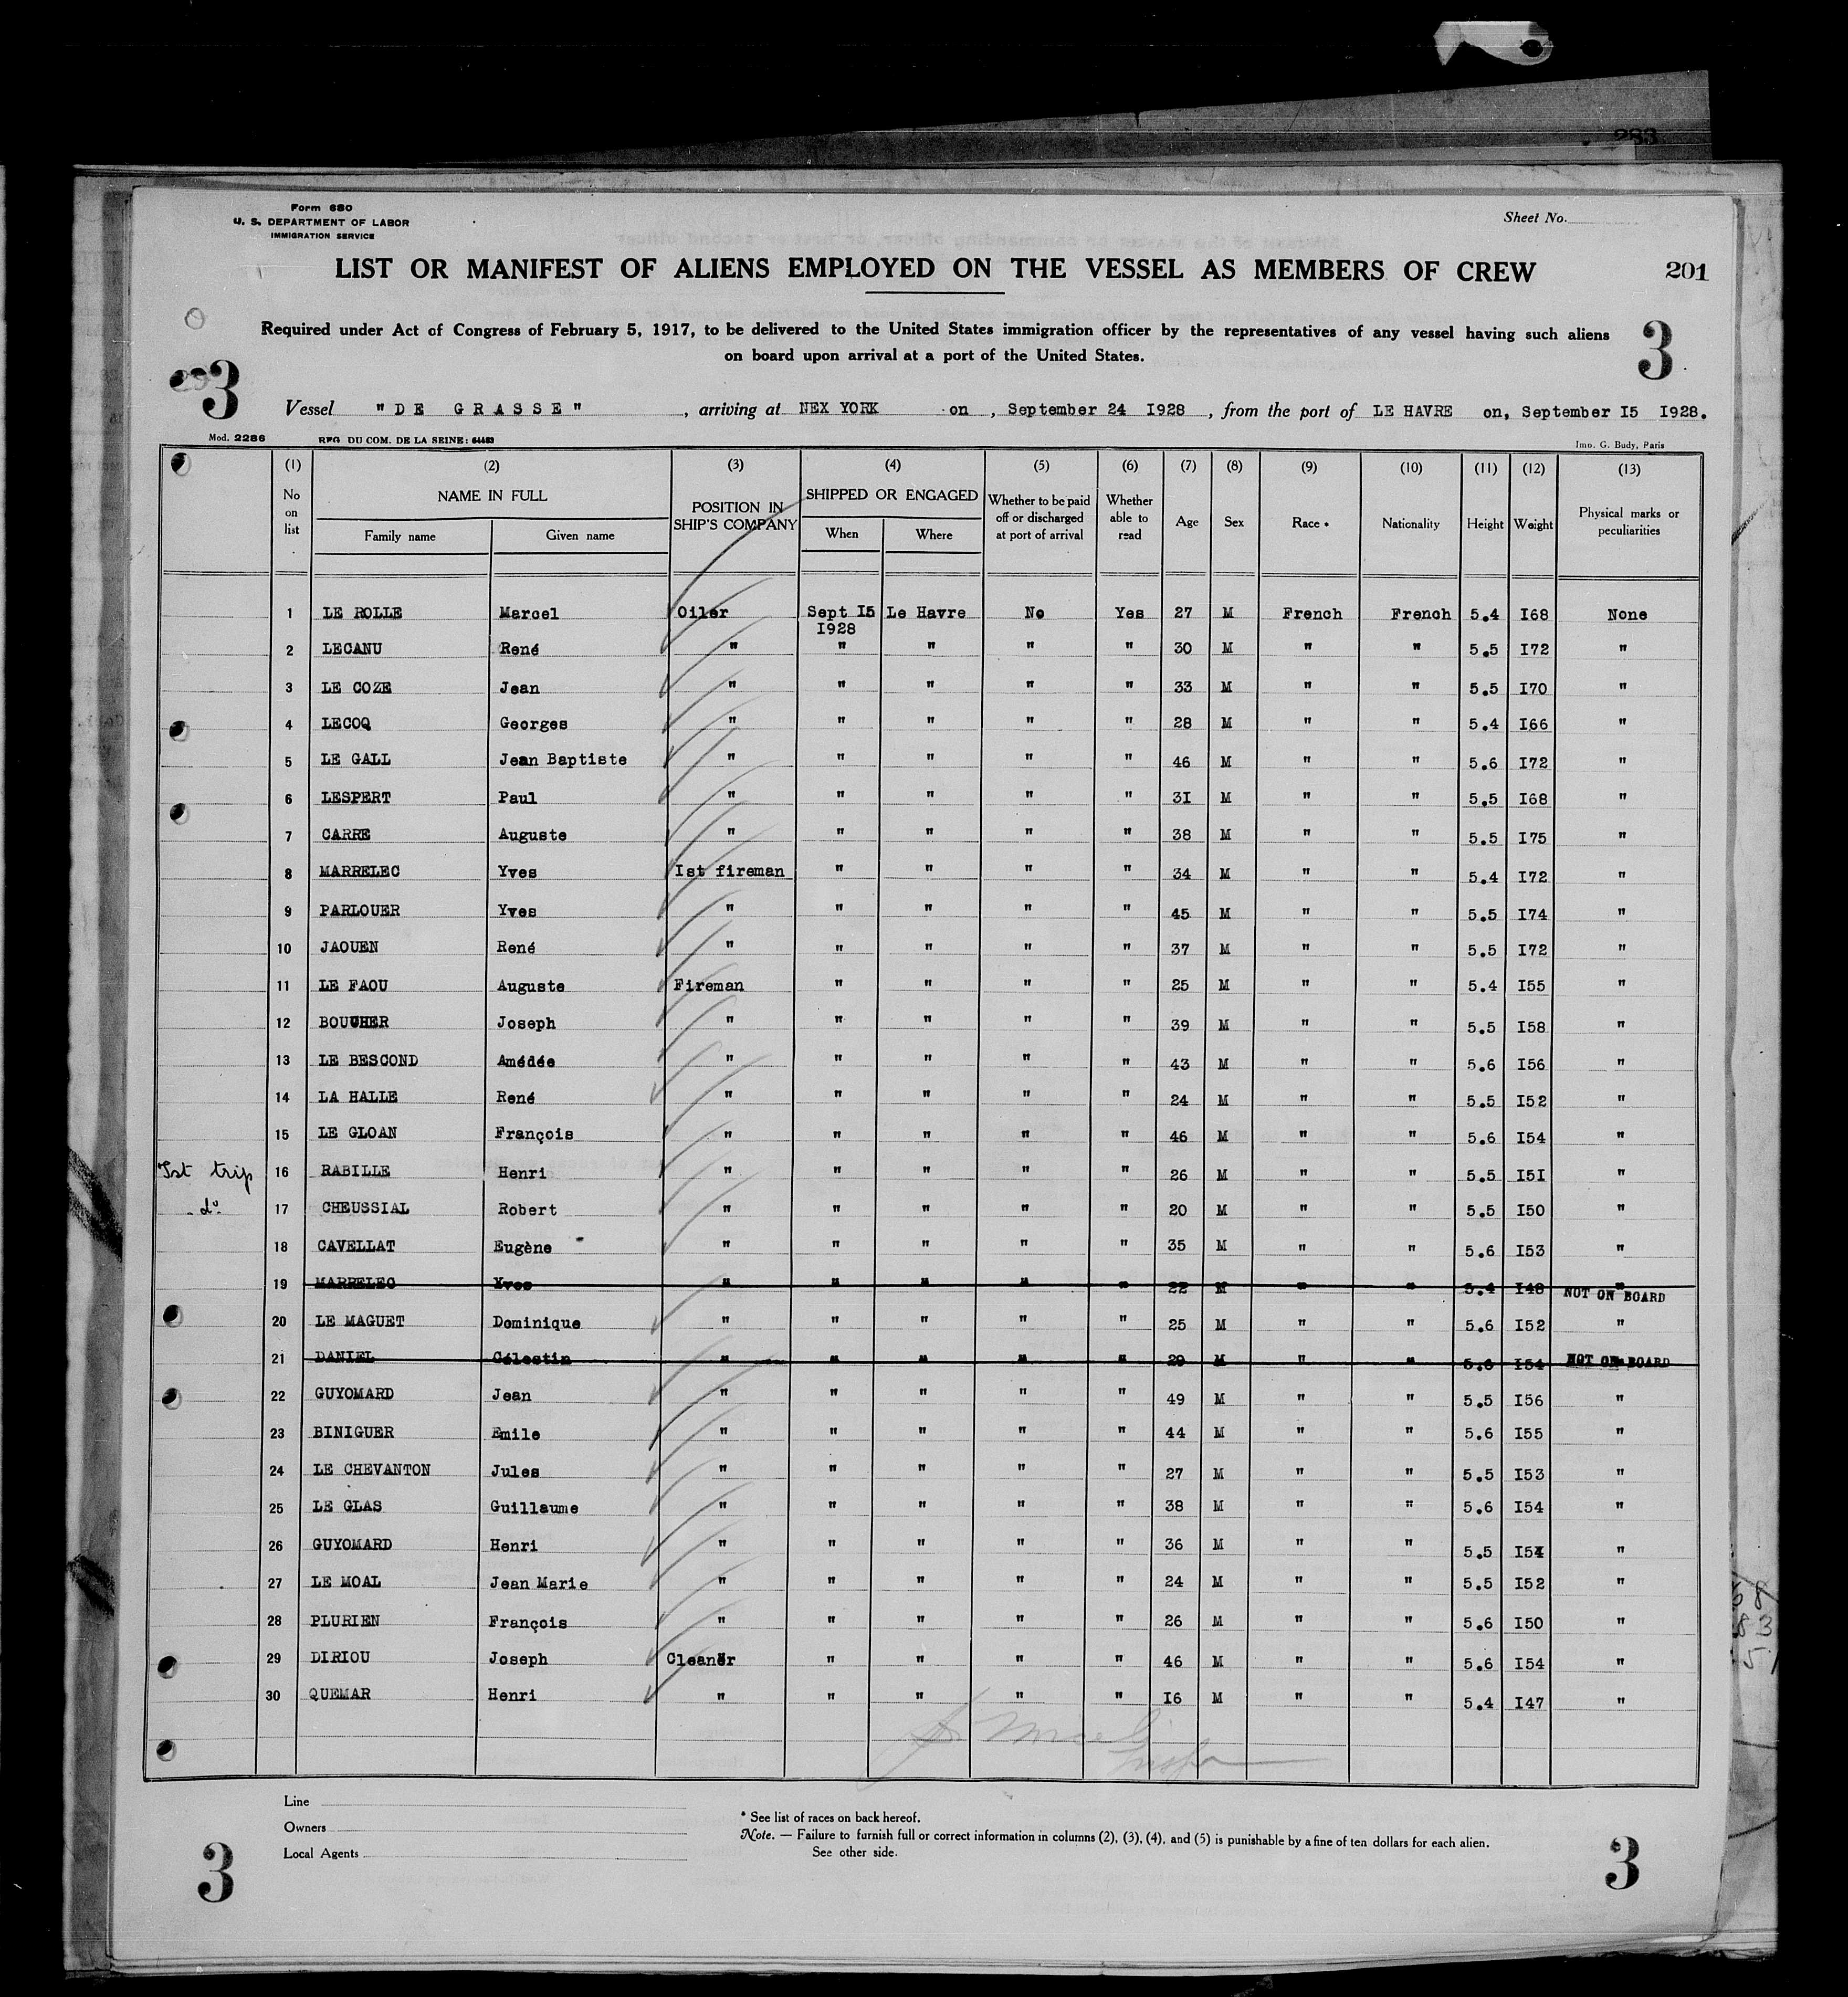 283
Form 680
U. S. DEPARTMENT OF LABOR
IMMIGRATION SERVICE
Sheet No.
LIST OR MANIFEST OF ALIENS EMPLOYED ON THE VESSEL AS MEMBERS OF CREW
201
Required under Act of Congress of February 5, 1917, to be delivered to the United States immigration officer by the representatives of any vessel having such aliens
on board upon arrival at a port of the United States.
3
3
Vessel "DE GRASSE" , arriving at NEX YORK on , September 24 I928 , from the port of LE HAVRE on, September I5 I928.
Mod. 2286 REG DU COM. DE LA SEINE: 64483 Imp. G. Budy, Paris
(1) (2) (3) (4) (5) (6) (7) (8) (9) (10) (11) (12) (13)
No on list NAME IN FULL Family name Given name POSITION IN SHIP'S COMPANY SHIPPED OR ENGAGED When Where Whether to be paid off or discharged at port of arrival Whether able to read Age Sex Race * Nationality Height Weight Physical marks or peculiarities
1 LE ROLLE Marcel Oiler Sept I5 I928 Le Havre No Yes 27 M French French 5.4 I68 None
2 LECANU René " " " " " 30 M " " 5.5 I72 "
3 LE COZE Jean " " " " " 33 M " " 5.5 I70 "
4 LECOQ Georges " " " " " 28 M " " 5.4 I66 "
5 LE GALL Jean Baptiste " " " " " 46 M " " 5.6 I72 "
6 LESPERT Paul " " " " " 3I M " " 5.5 I68 "
7 CARRE Auguste " " " " " 38 M " " 5.5 I75 "
8 MARRELEC Yves Ist fireman " " " " 34 M " " 5.4 I72 "
9 PARLOUER Yves " " " " " 45 M " " 5.5 I74 "
10 JAOUEN René " " " " " 37 M " " 5.5 I72 "
11 LE FAOU Auguste Fireman " " " " 25 M " " 5.4 I55 "
12 BOUCHER Joseph " " " " " 39 M " " 5.5 I58 "
13 LE BESCOND Amédée " " " " " 43 M " " 5.6 I56 "
14 LA HALLE René " " " " " 24 M " " 5.5 I52 "
15 LE GLOAN François " " " " " 46 M " " 5.6 I54 "
Ist trip 16 RABILLE Henri " " " " " 26 M " " 5.5 I5I "
do 17 CHEUSSIAL Robert " " " " " 20 M " " 5.5 I50 "
18 CAVELLAT Eugène " " " " " 35 M " " 5.6 I53 "
19 MARRELEC Yves " " " " " 22 M " " 5.4 I48 " NOT ON BOARD
20 LE MAGUET Dominique " " " " " 25 M " " 5.6 I52 "
21 DANIEL Célestin " " " " " 29 M " " 5.6 I54 NOT ON BOARD
22 GUYOMARD Jean " " " " " 49 M " " 5.5 I56 "
23 BINIGUER Emile " " " " " 44 M " " 5.6 I55 "
24 LE CHEVANTON Jules " " " " " 27 M " " 5.5 I53 "
25 LE GLAS Guillaume " " " " " 38 M " " 5.6 I54 "
26 GUYOMARD Henri " " " " " 36 M " " 5.5 I54 "
27 LE MOAL Jean Marie " " " " " 24 M " " 5.5 I52 "
28 PLURIEN François " " " " " 26 M " " 5.6 I50 "
29 DIRIOU Joseph Cleaner " " " " 46 M " " 5.6 I54 "
30 QUEMAR Henri " " " " " I6 M " " 5.4 I47 "
Line
Owners
Local Agents
* See list of races on back hereof.
Note. — Failure to furnish full or correct information in columns (2), (3), (4), and (5) is punishable by a fine of ten dollars for each alien.
See other side.
3
3